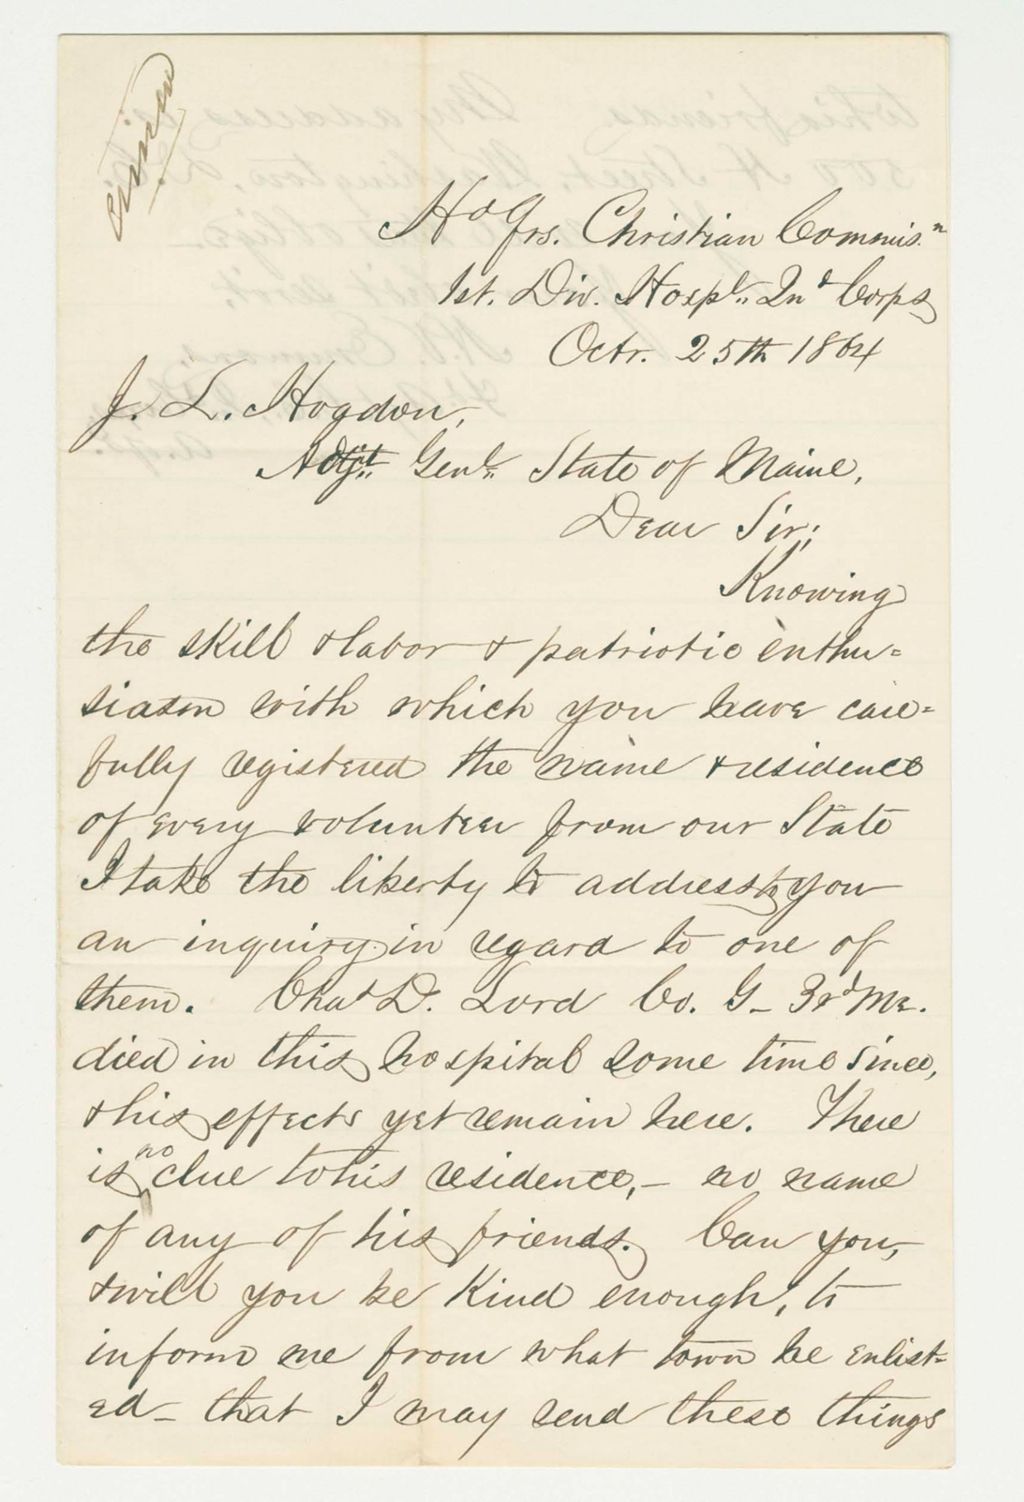 Hd Qrs. Christian Commis.n
1st. Div. Hospl., 2nd Corps
Octr. 25th 1864
J. L. Hogdon,
Adjt. Genl. State of Maine.
Dear Sir;
Knowing
the skill & labor & patriotic enthu=
siasm with which you have care=
fully registered the name & residence
of every volunteer from our State
I take the liberty to address to you
an inquiry in regard to one of
them. Chas D. Lord Co. G - 3rd Me.
died in this hospital some time since,
& his effects yet remain here. There
is no clue to his residence, - no name
of any of his friends. Can you,
& will you be kind enough, to
inform me from what town he enlist-
ed - that I may send these things